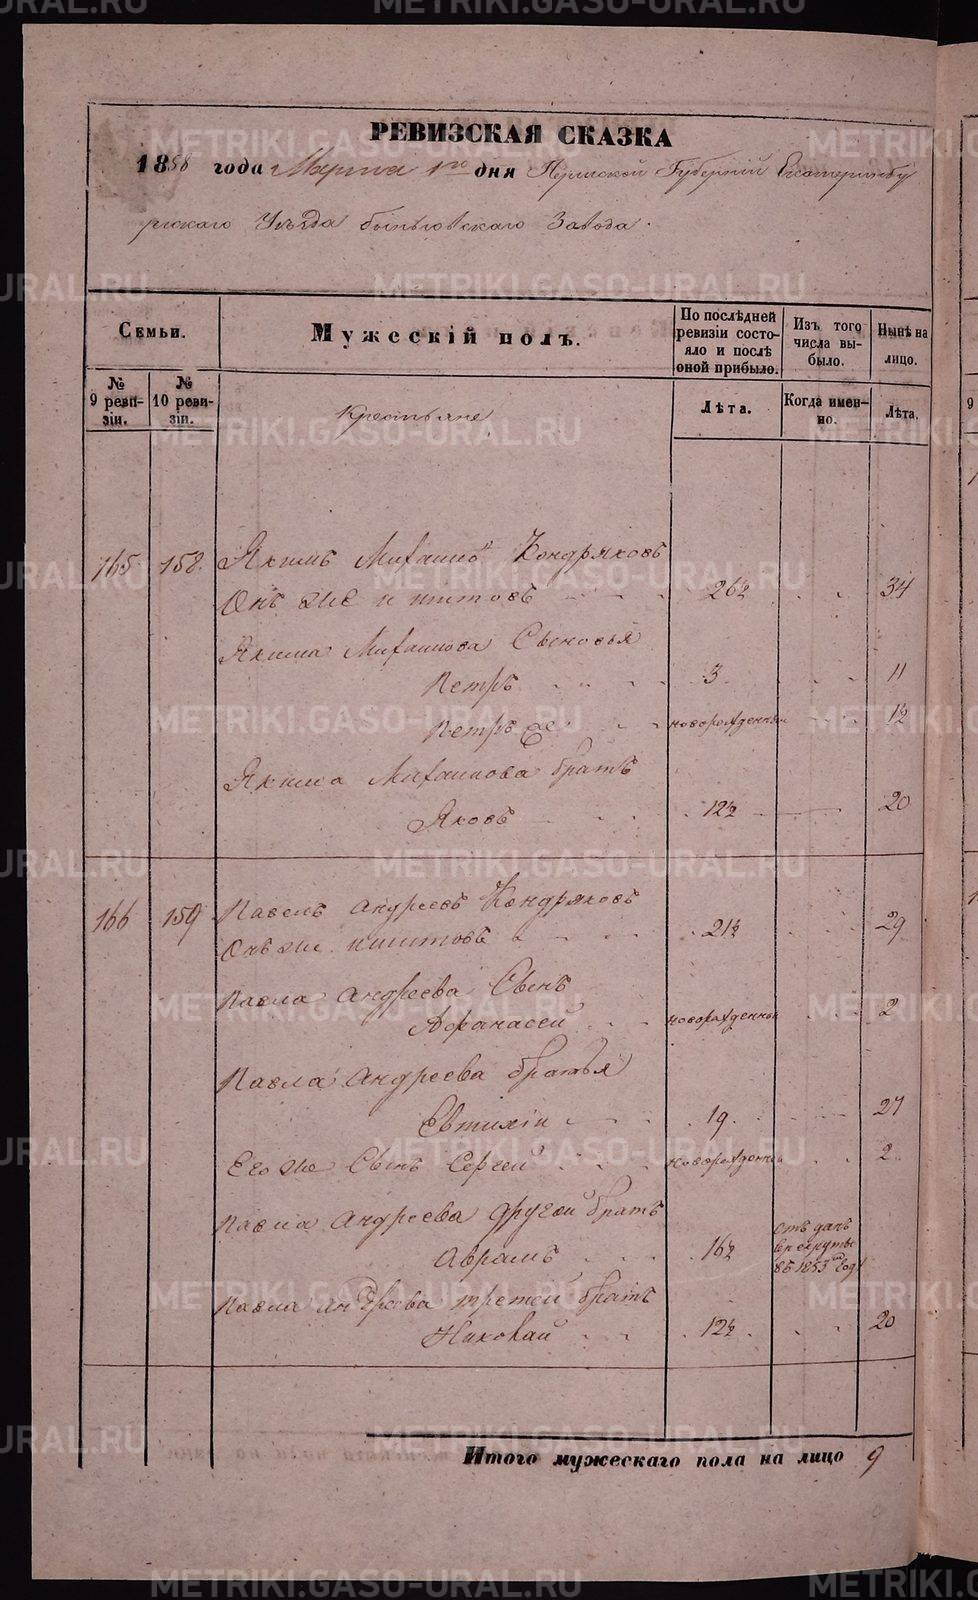 РЕВИЗСКАЯ СКАЗКА
1858 года Марта 1го дня Пермской Губерній Екатеринбу
ргскаго Уѣзда Заводa.
Семьи.
Мужескій полъ.
По послѣдней ревизіи состояло и послѣ оной прибыло.
Изъ того числа выбыло.
Нынѣ на лицо.
№ 9 ревизіи.
№ 10 ревизіи.
Крестьяне
Лѣта.
Когда именно.
Лѣта.
165 158. Якимъ Михаиловъ Кондряковъ
Онъ же и Титовъ 26½ 34
Якима Михаилова Сыновья
Петръ 3 11
Петръ же новорожденный 1½
Якима Михаилова братъ
Яковъ 12½ 20
166 159 Павелъ Андреевъ Кондряковъ
Онъ же и Титовъ 21½ 29
Павла Андреева Сынъ
Афанасей новорожденный 2
Павла Андреева братья
Евтихіи 19 27
Его же Сынъ Сергеи новорожденный 2
Павла Андреева другой братъ
Аврамъ 16½ отъданъ врекруты въ 1853мъ Году
Павла Андреева третей братъ
Николай 12½ 20
Итого мужескаго пола на лицо 9
METRIKI.GASO-URAL.RU